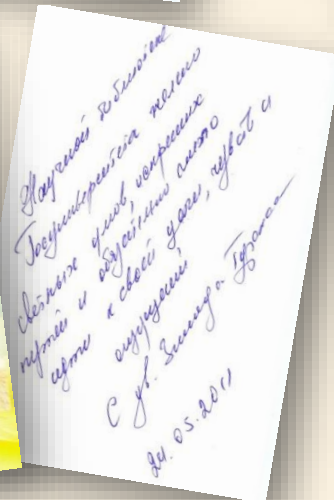 Научной библиотеке
Госуниверситета желаю
светлых умов, искренних
путей и обязательно смело
идти к своей цели, чувств и
ощущений
С ув. Зинаида
24.05.2011